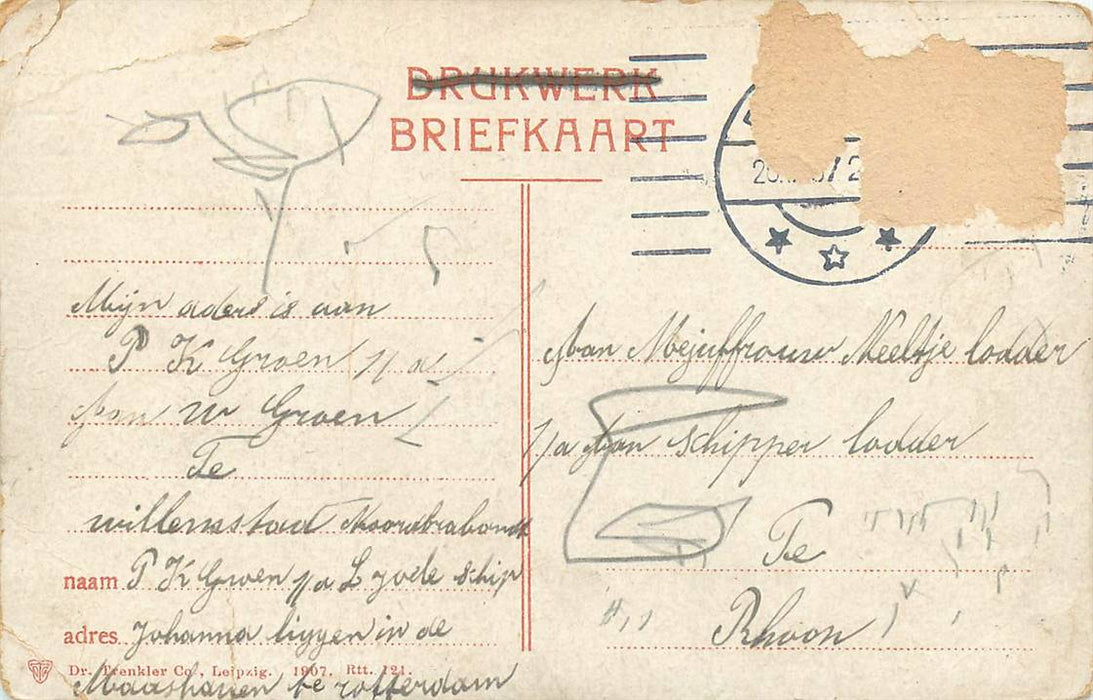 DRUKWERK
BRIEFKAART
Mijn aders is aan
P K Groen p/a
Aan W Groen
Te
willemstad Noordbrabandt
naam P K Groen p/a L zyole schip
adres Johanna liggen in de
Dr. Trenkler Co., Leipzig. 1907. Rtt. 121.
Maashaven te rotterdam
Aan Mejuffrouw Neeltje lodder
p/a Aan schipper lodder
Te
Rhoon